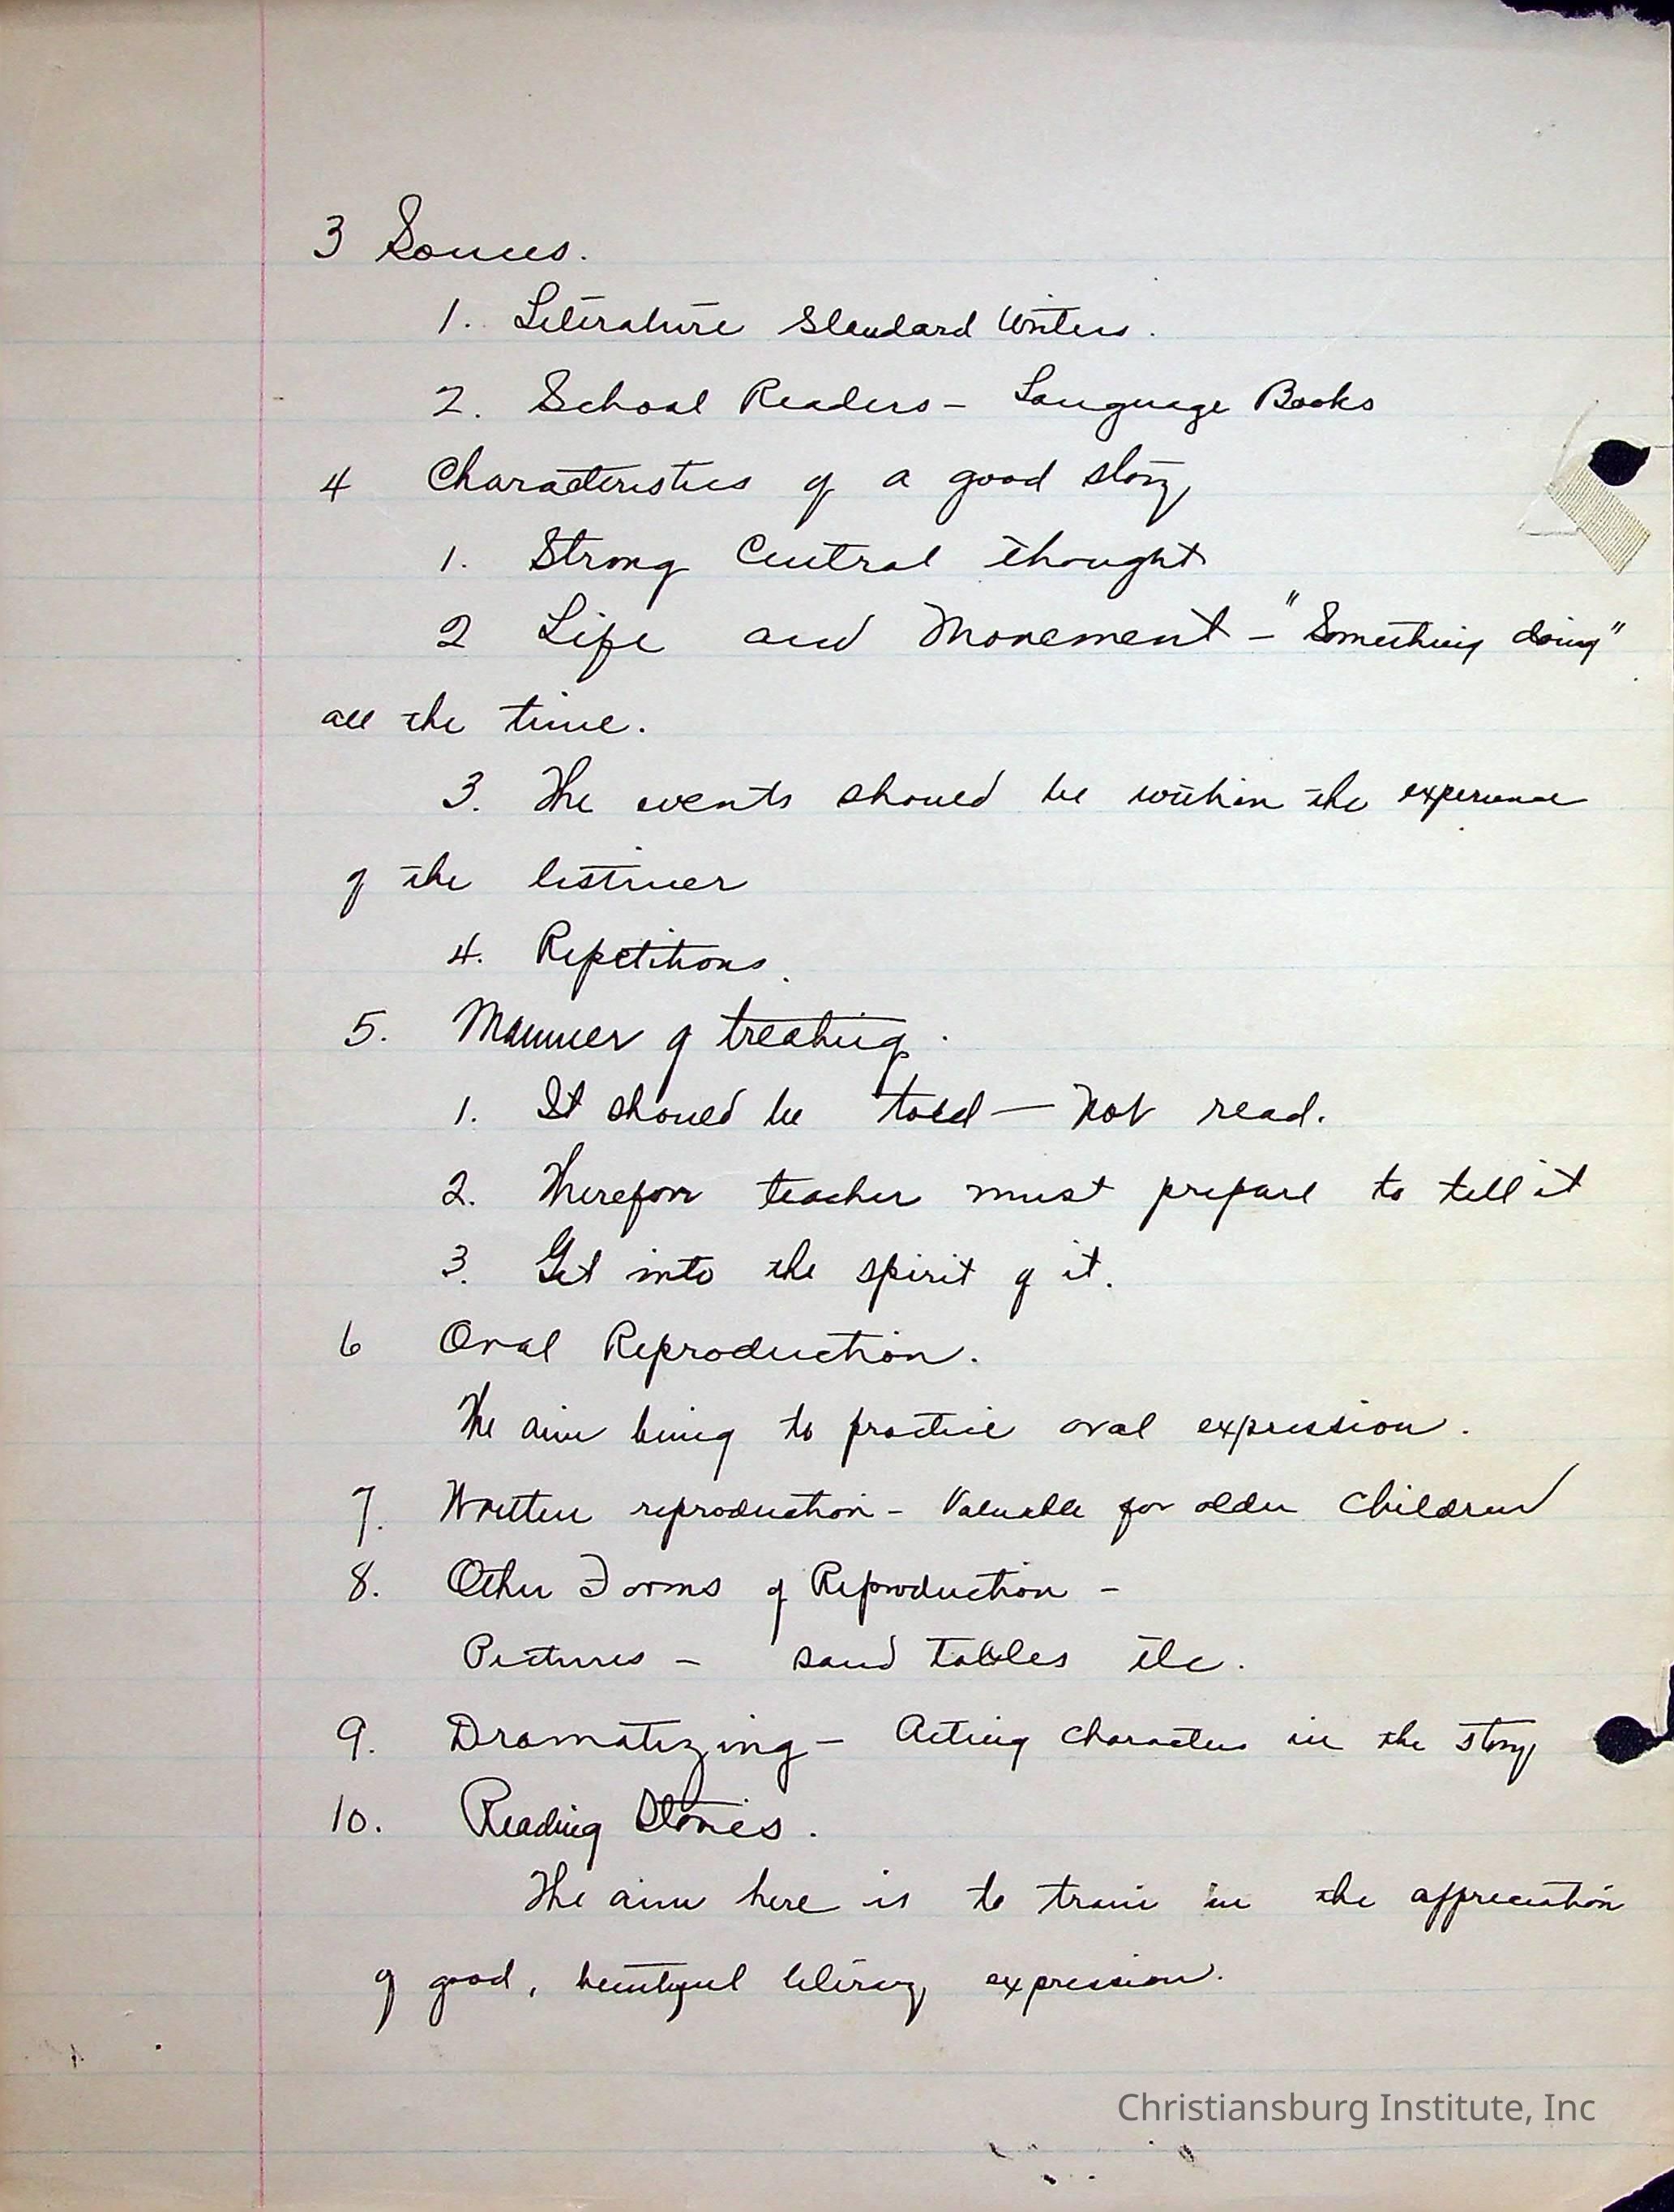 3 Sources.
1. Literature Standard Writers.
2. School Readers - Language Books
4 Characteristics of a good story
1. Strong Central thought
2 Life and Movement - "Something doing"
all the time.
3. The events should be within the experience
of the listener
4. Repetitions.
5. Manner of treating.
1. It should be told - Not read.
2. Therefore teacher must prepare to tell it
3. Get into the spirit of it.
6 Oral Reproduction.
The aim being to practice oral expression.
7. Written reproduction - Valuable for older children
8. Other Forms of Reproduction -
Pictures - sand tables etc.
9. Dramatizing - Acting characters in the story
10. Reading Stories.
The aim here is to train in the appreciation
of good, beautiful literary expression.
Christiansburg Institute, Inc